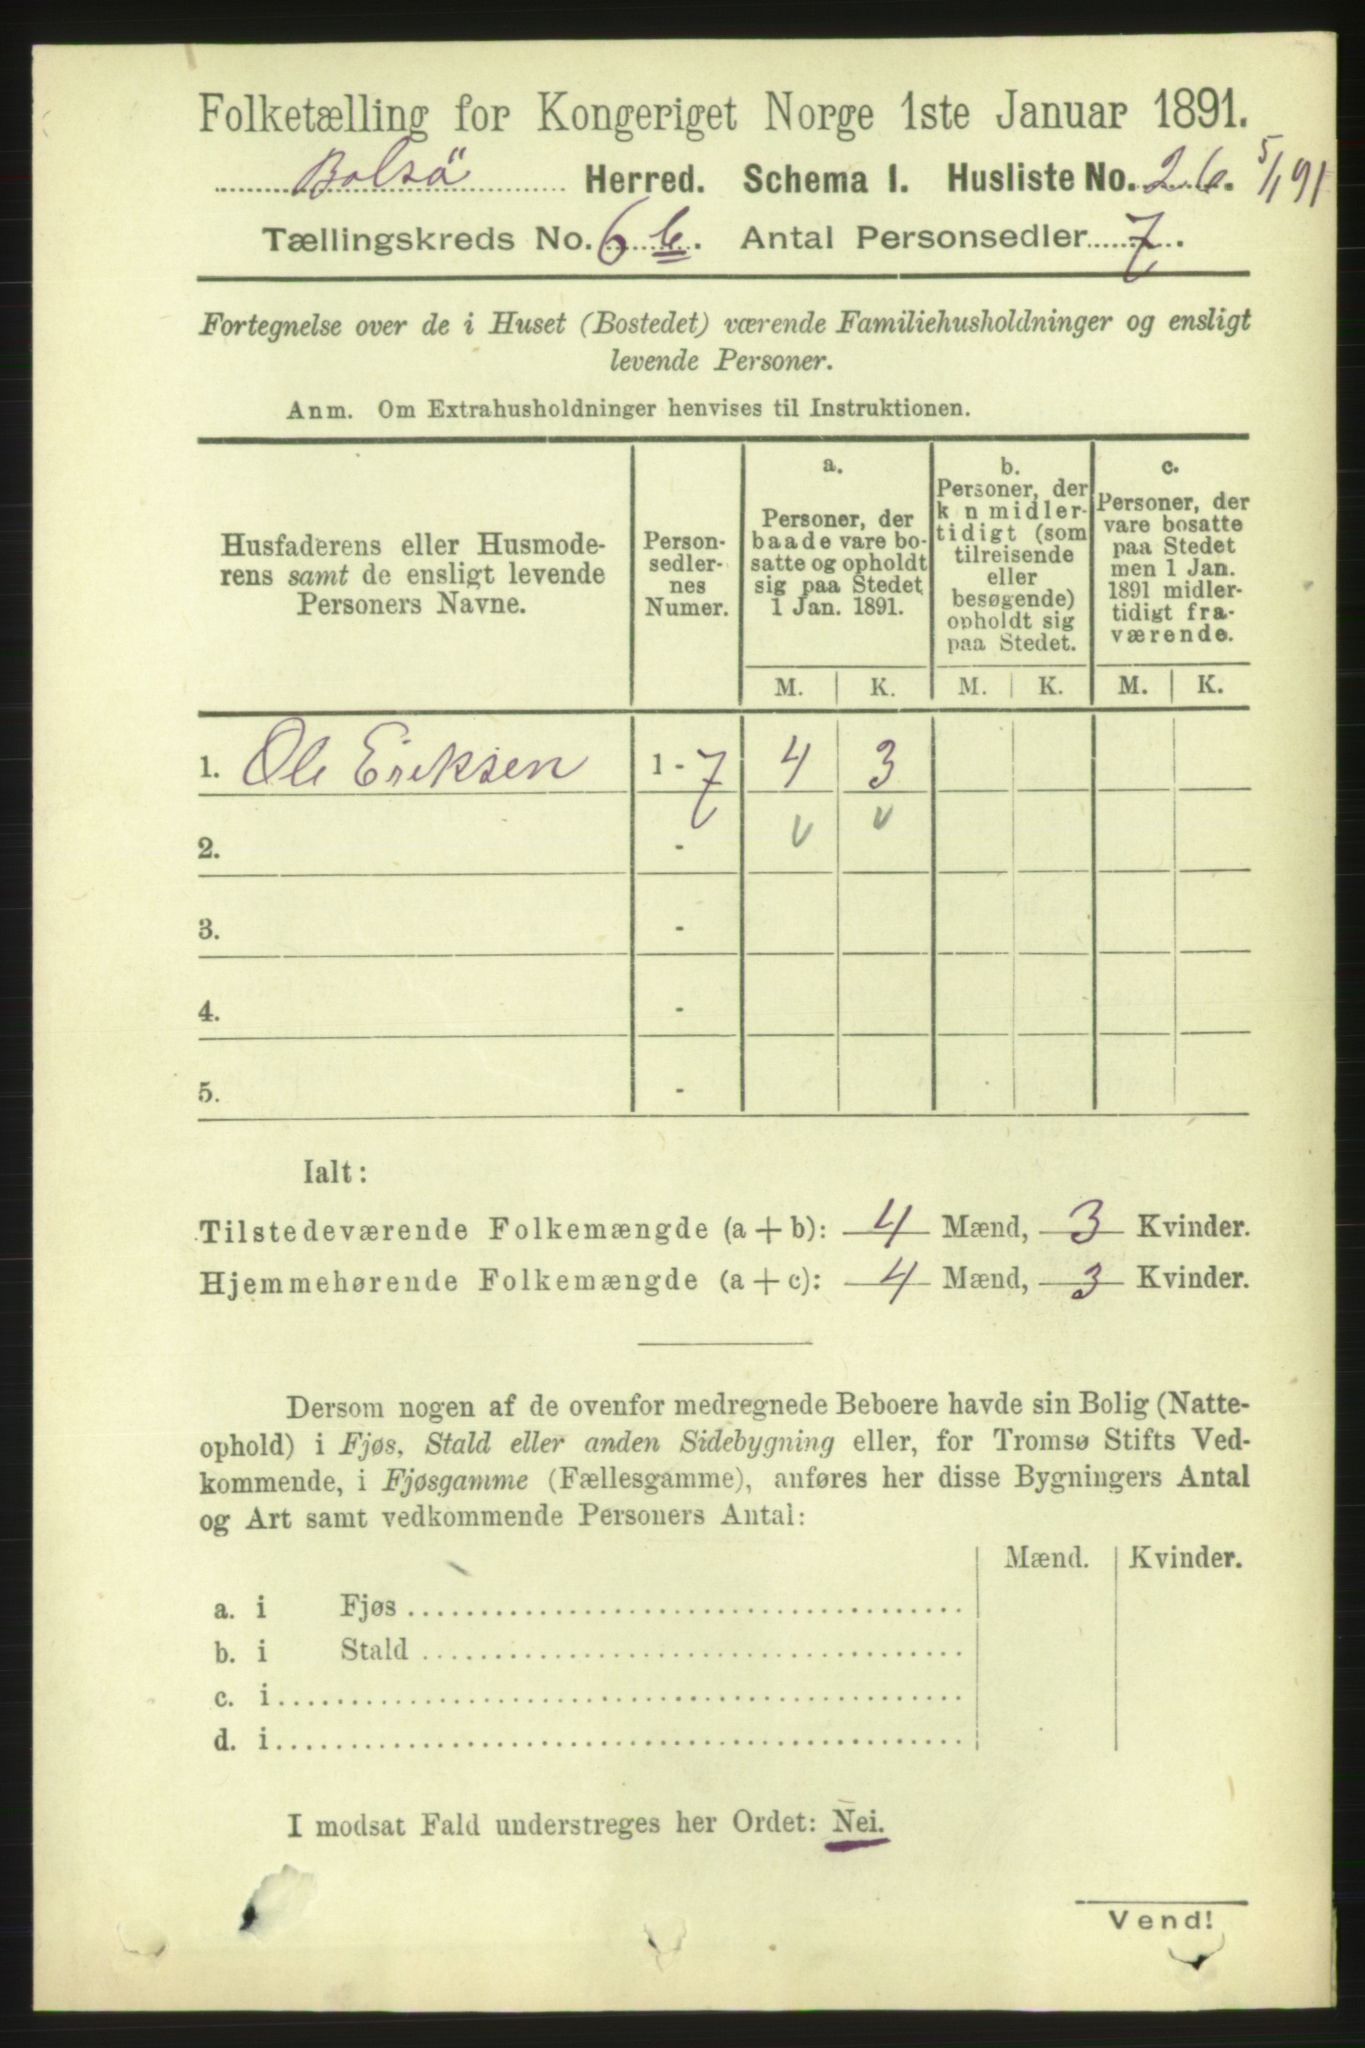 Folketælling for Kongeriget Norge 1ste Januar 1891.
Bolsö Herred. Schema I. Husliste No. 26. 5/1 91
Tællingskreds No. 6 6. Antal Personsedler 7.
Fortegnelse over de i Huset (Bostedet) værende Familiehusholdninger og ensligt
levende Personer.
Anm. Om Extrahusholdninger henvises til Instruktionen.
Husfaderens eller Husmode-
rens samt de ensligt levende
Personers Navne.
Person-
sedler-
nes
Numer.
a.
Personer, der
baade vare bo-
satte og opholdt
sig paa Stedet
1 Jan. 1891.
b.
Personer, der
k n midler-
tidigt (som
tilreisende
eller
besøgende)
opholdt sig
paa Stedet.
c.
Personer, der
vare bosatte
paa Stedet
men 1 Jan.
1891 midler-
tidigt fra-
værende.
M. K. M. K. M. K.
1. Ole Eriksen 1 - 7 4 3
2. -
3. -
4. -
5. -
Ialt:
Tilstedeværende Folkemængde (a + b): 4 Mænd, 3 Kvinder.
Hjemmehørende Folkemængde (a + c): 4 Mænd, 3 Kvinder.
Dersom nogen af de ovenfor medregnede Beboere havde sin Bolig (Natte-
ophold) i Fjøs, Stald eller anden Sidebygning eller, for Tromsø Stifts Ved-
kommende, i Fjøsgamme (Fællesgamme), anføres her disse Bygningers Antal
og Art samt vedkommende Personers Antal:
Mænd. Kvinder.
a. i Fjøs
b. i Stald
c. i
d. i
I modsat Fald understreges her Ordet: Nei.
Vend!